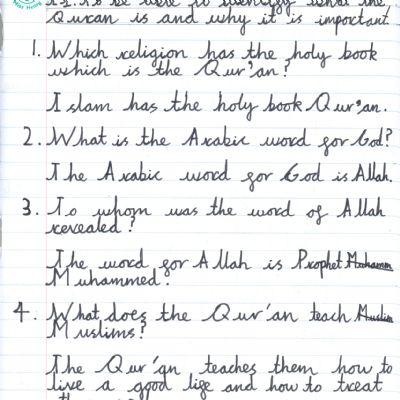 to be able to identify what the
Quran is and why it is important.
1. Which religion has the holy book
which is the Qur'an?
Islam has the holy book Qur'an.
2. What is the Arabic word for God?
The Arabic word for God is Allah.
3. To whom was the word of Allah
revealed?
The word for Allah is Prophet
Muhammed.
4. What does the Qur'an teach
Muslims?
The Qur'an teaches them how to
live a good life and how to treat